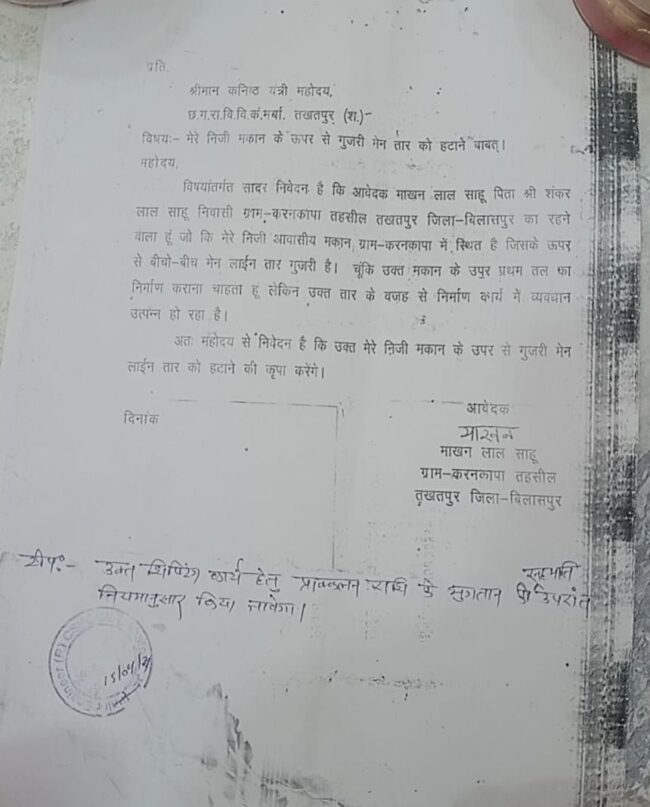 प्रति,
श्रीमान कनिष्ठ यंत्री महोदय,
छ.ग.रा.वि.वि.कं.मर्या. तखतपुर (श.)–
विषयः– मेरे निजी मकान के ऊपर से गुजरी मेन तार को हटाने बाबत्।
महोदय,
विषयांतर्गत सादर निवेदन है कि आवेदक माखन लाल साहू पिता श्री शंकर
लाल साहू निवासी ग्राम–करनकापा तहसील तखतपुर जिला–बिलासपुर का रहने
वाला हूं जो कि मेरे निजी आवासीय मकान ग्राम–करनकापा में स्थित है जिसके ऊपर
से बीचो–बीच मेन लाईन तार गुजरी है। चूंकि उक्त मकान के उपर प्रथम तल का
निर्माण कराना चाहता हूं लेकिन उक्त तार के वजह से निर्माण कार्य में व्यवधान
उत्पन्न हो रहा है।
अतः महोदय से निवेदन है कि उक्त मेरे निजी मकान के उपर से गुजरी मेन
लाईन तार को हटाने की कृपा करेंगे।
दिनांक
आवेदक
माखन
माखन लाल साहू
ग्राम–करनकापा तहसील
तखतपुर जिला–बिलासपुर
टीपः– उक्त शिफ्टिंग कार्य हेतु प्राक्कलन राशि के भुगतान की सहमति उपरांत
नियमानुसार किया जावेगा।
15/04/21